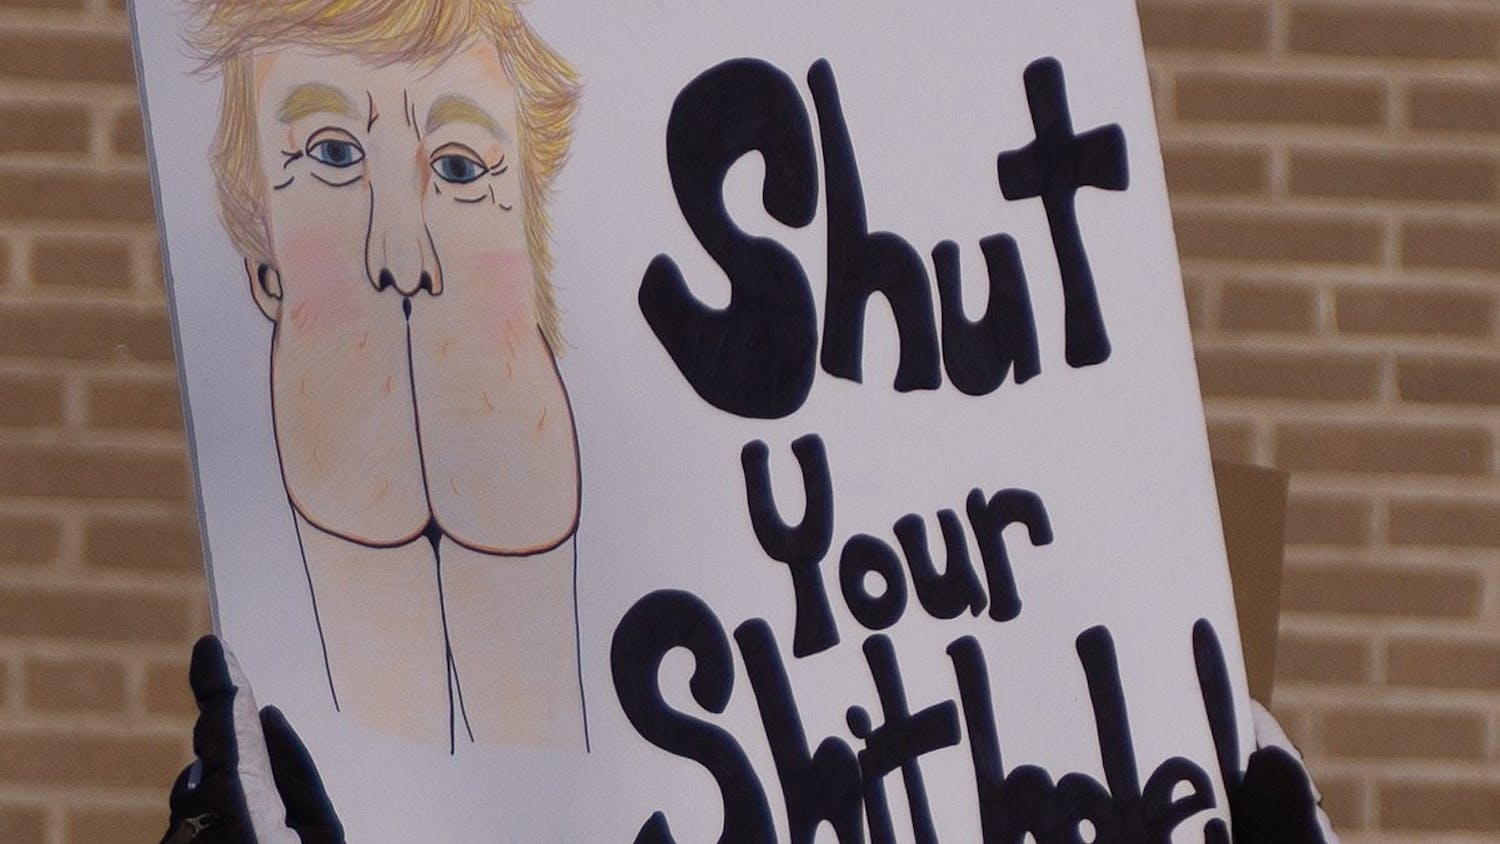 Shut
Your
Shithole!